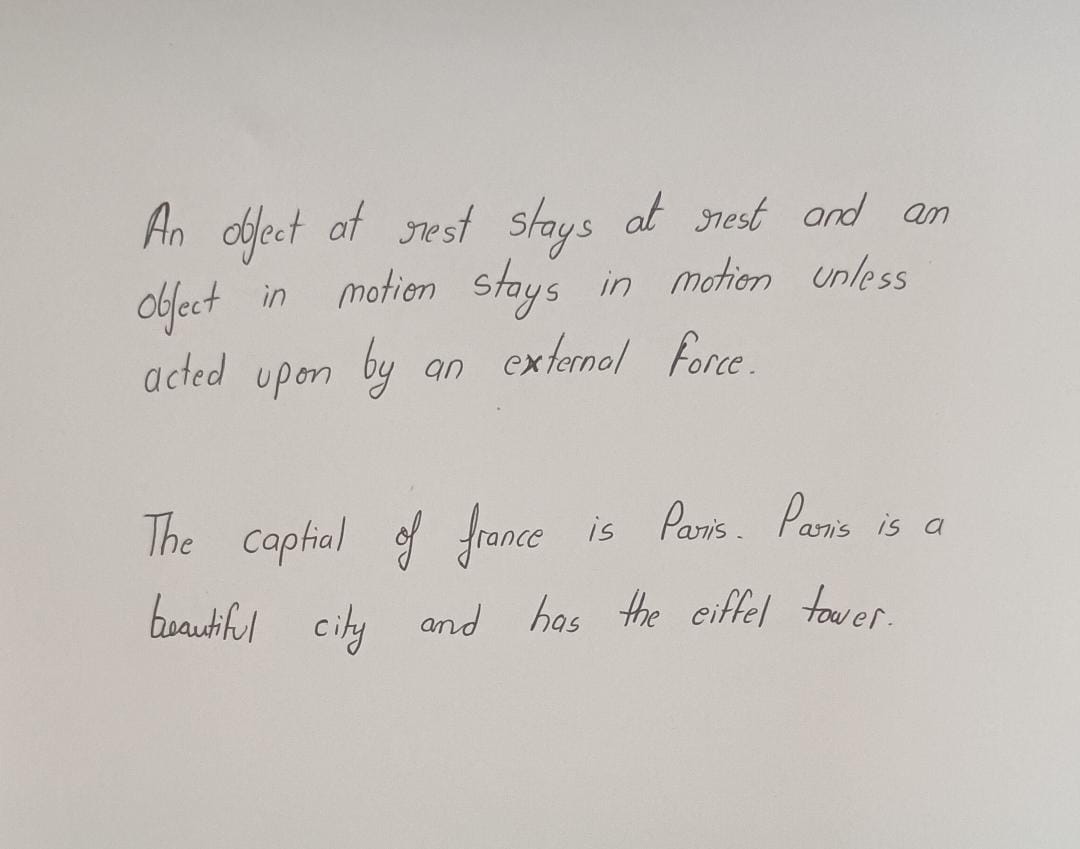 An object at rest stays at rest and an
object in motion stays in motion unless
acted upon by an external force.
The captial of france is Paris. Paris is a
beautiful city and has the eiffel tower.